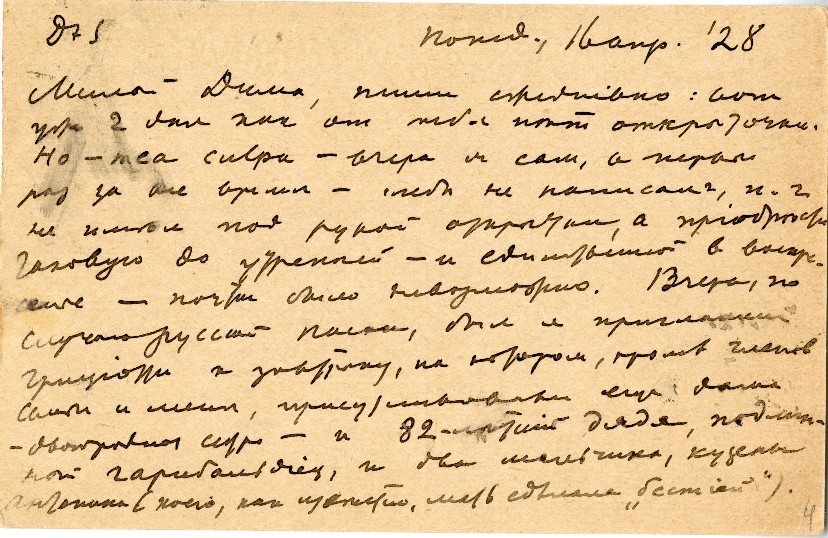 понед., 16 апр. '28
Милый Дима, пиши ежедневно: вот
уже 2 дня как от тебя нет открыточки.
Но – вчера я сам, в первый
раз за все время – тебе не написалъ, п. ч.
не имѣл под рукой открытки, а пріобрѣсти
таковую до утренней – и единственной в воскре-
сенье – почты было невозможно. Вчера, по
случаю русской пасхи, был я приглашен
к завтраку, на котором, кромѣ членов
семьи и меня, присутствовали еще дама
– двоюродная сестра – и 82-лѣтній дядя, подлин-
ный гарибальдіец, и два мальчика, кузены
(коего, как извѣстно, мать сдѣлала „бестіей“).
4